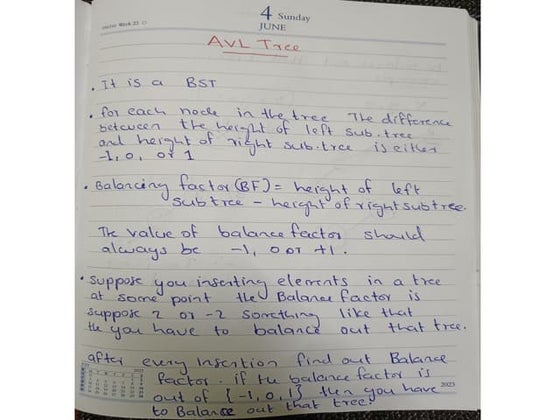 4 Sunday
JUNE
Week 23
AVL Tree
• It is a BST
• for each node in the tree The difference
between the height of left sub.tree
and height of right sub.tree is either
-1, 0, or 1
• Balancing factor (BF) = height of left
subtree - height of right subtree.
The value of balance factor should
always be -1, 0 or +1.
• suppose you inserting elements in a tree
at some point the Balance factor is
suppose 2 or -2 something like that
the you have to balance out that tree.
after every insertion find out Balance
factor. if the balance factor is
out of {-1, 0, 1} then you have
to Balance out that tree.
2023